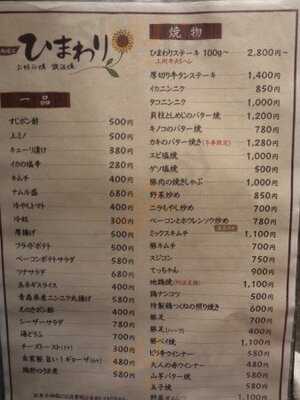 ひまわり
お好み焼 鉄板焼
一品
すじポン酢 500円
上ミノ 500円
キューリ漬け 380円
イカの塩辛 280円
キムチ 400円
ナムル盛 680円
冷やしトマト 400円
冷奴 300円
厚揚げ 500円
フライドポテト 500円
ベーコンポテトサラダ 580円
ツナサラダ 680円
玉ネギスライス 400円
青森県産ニンニク丸揚げ 580円
えのきポン酢 400円
シーザーサラダ 780円
海ぶどう 700円
チーズトースト 300円
自家製 旨い!ギョーザ 480円
鶏肝のうま煮 580円
焼物
ひまわりステーキ 100g~ 2,800円~
厚切り牛タンステーキ 1,400円
イカニンニク 850円
タコニンニク 1,000円
貝柱としめじのバター焼 1,200円
キノコのバター焼 780円
カキのバター焼き(冬季限定) 1,280円
エビ塩焼 1,000円
ゲソ塩焼 500円
豚肉の焼きしゃぶ 1,000円
野菜炒め 850円
ニラもやし炒め 700円
ベーコンとホウレンソウ炒め 780円
ミックスキムチ 1,100円
豚キムチ 700円
スジコン 750円
てっちゃん 900円
1,100円
鶏ナンコツ 500円
特製鶏つくねの照り焼き 600円
豚足 700円
豚足(ハーフ) 400円
豚ペイ焼 1,100円
ピリ辛ウインナー 580円
大人の赤ウインナー 480円
山芋バター焼 580円
玉子焼 580円